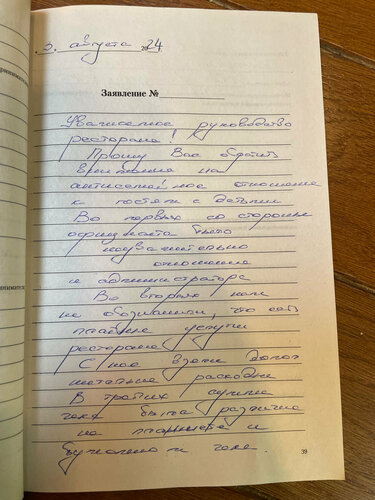 3. августа 2024
Заявление №
Уважаемое руководство
ресторана!
Прошу Вас обратить
внимание на
отношение
к гостям с детьми
Во первых со стороны
официанта было
неуважительно
отношение
и администратора
Во вторых нам
не обозначили, что есть
платные услуги
ресторана
С нас взяли допол
нительные расходы
В третьих сумма
чека была различна
на планшете и
бумажном чеке.
39